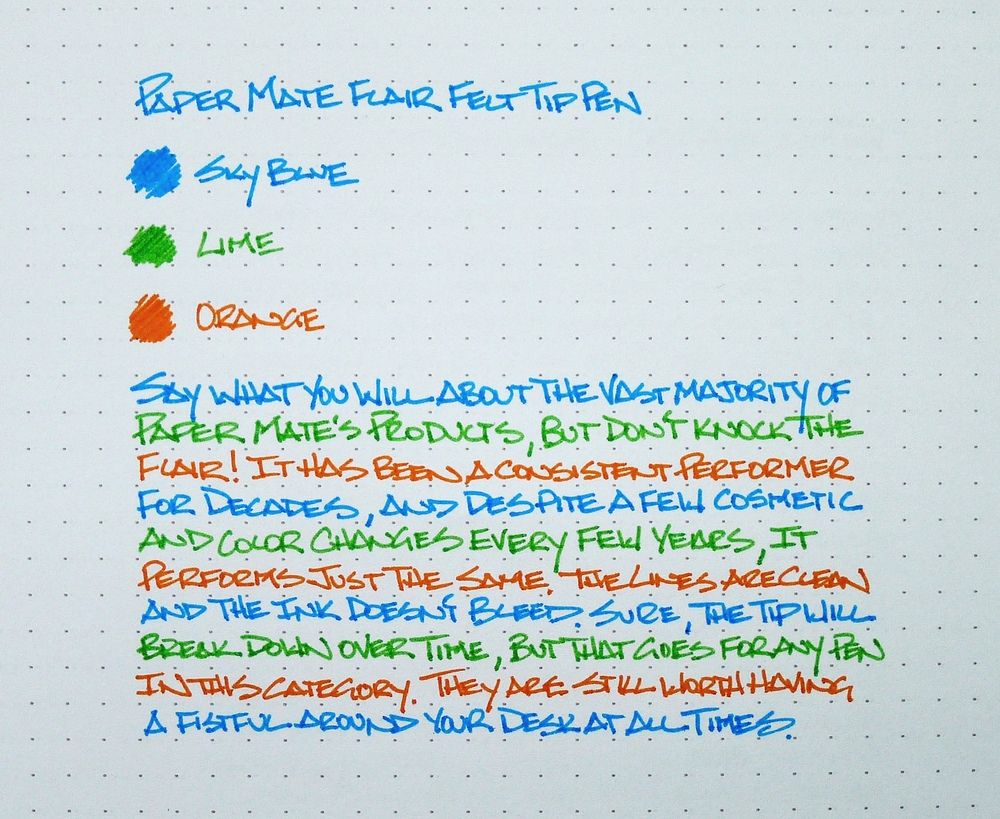 PAPER MATE FLAIR FELT TIP PEN
SKY BLUE
LIME
ORANGE
SAY WHAT YOU WILL ABOUT THE VAST MAJORITY OF
PAPER MATE'S PRODUCTS, BUT DON'T KNOCK THE
FLAIR! IT HAS BEEN A CONSISTENT PERFORMER
FOR DECADES, AND DESPITE A FEW COSMETIC
AND COLOR CHANGES EVERY FEW YEARS, IT
PERFORMS JUST THE SAME. THE LINES ARE CLEAN
AND THE INK DOESN'T BLEED. SURE, THE TIP WILL
BREAK DOWN OVER TIME, BUT THAT GOES FOR ANY PEN
IN THIS CATEGORY. THEY ARE STILL WORTH HAVING
A FISTFUL AROUND YOUR DESK AT ALL TIMES.